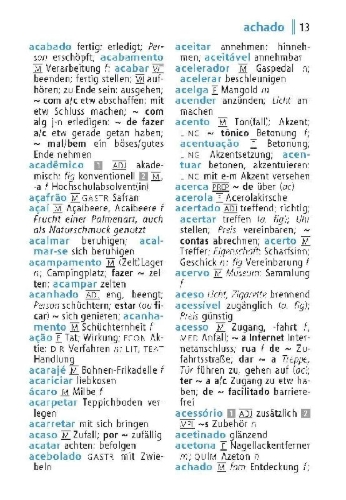 achado 13
acabado fertig; erledigt; Per-
son erschöpft; acabamento
M Verarbeitung f; acabar VT
beenden; fertig stellen; VI auf-
hören; zu Ende sein; ausgehen;
~ com a/c etw abschaffen; mit
etw Schluss machen; ~ com
alg j-n erledigen; ~ de fazer
a/c etw gerade getan haben;
~ mal/bem ein böses/gutes
Ende nehmen
acadêmico 1 ADJ akade-
misch; fig konventionell 2 M,
-a f Hochschulabsolvent(in)
açafrão M GASTR Safran
açaí M Açaíbeere, Acaíbeere f
Frucht einer Palmenart, auch
als Naturschmuck genutzt
acalmar beruhigen; acal-
mar-se sich beruhigen
acampamento M (Zelt)Lager
n; Campingplatz; fazer ~ zel-
ten; acampar zelten
acanhado ADJ eng, beengt;
Person schüchtern; estar (ou fi-
car) ~ sich genieren; acanha-
mento M Schüchternheit f
ação F Tat; Wirkung; ECON Ak-
tie; DIR Verfahren n; LIT, TEAT
Handlung
acarajé M Bohnen-Frikadelle f
acariciar liebkosen
ácaro M Milbe f
acarpetar Teppichboden ver-
legen
acarretar mit sich bringen
acaso M Zufall; por ~ zufällig
acatar achten; befolgen
acebolado GASTR mit Zwie-
beln
aceitar annehmen; hinneh-
men, aceitável annehmbar
acelerador M Gaspedal n;
acelerar beschleunigen
acelga F Mangold m
acender anzünden; Licht an-
machen
acento M Ton(fall); Akzent;
LING ~ tônico Betonung f;
acentuação F Betonung;
LING Akzentsetzung; acen-
tuar betonen, akzentuieren;
LING mit e-m Akzent versehen
acerca PREP ~ de über (ac)
acerola F Acerolakirsche
acertado ADJ treffend; richtig;
acertar treffen (a. fig); Uhr
stellen; Preis vereinbaren; ~
contas abrechnen; acerto M
Treffer; Eigenschaft: Scharfsinn;
Geschick n; fig Vereinbarung f
acervo M Museum: Sammlung
f
aceso Licht, Zigarette brennend
acessível zugänglich (a. fig);
Preis günstig
acesso M Zugang, -fahrt f;
MED Anfall; ~ a Internet Inter-
netanschluss; rua f de ~ Zu-
fahrtsstraße; dar ~ a Treppe,
Tür führen zu, gehen auf (ac);
ter ~ a a/c Zugang zu etw ha-
ben; de ~ facilitado barriere-
frei
acessório 1 ADJ zusätzlich 2
MPL ~s Zubehör n
acetinado glänzend
acetona F Nagellackentferner
m; QUÍM Azeton n
achado M fam Entdeckung f;